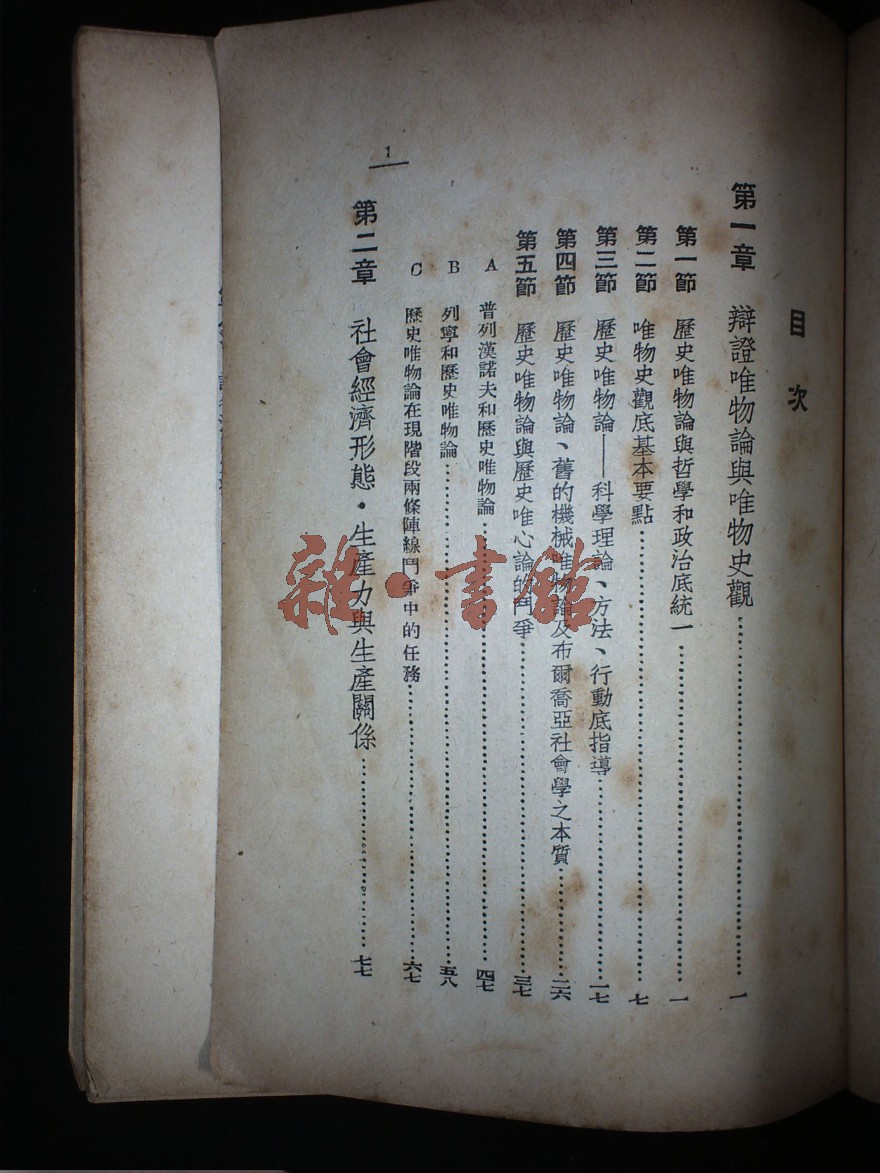 目次
第一章 辯證唯物論與唯物史觀……一
第一節 歷史唯物論與哲學和政治底統一……一
第二節 唯物史觀底基本要點……七
第三節 歷史唯物論——科學理論、方法、行動底指導……一七
第四節 歷史唯物論、舊的機械唯物論及布爾喬亞社會學之本質……二六
第五節 歷史唯物論與歷史唯心論的鬥爭……三七
A 普列漢諾夫和歷史唯物論……四七
B 列寧和歷史唯物論……五八
C 歷史唯物論在現階段兩條陣線鬥爭中的任務……六七
第二章 社會經濟形態・生產力與生產關係……七七
1
雜・書館